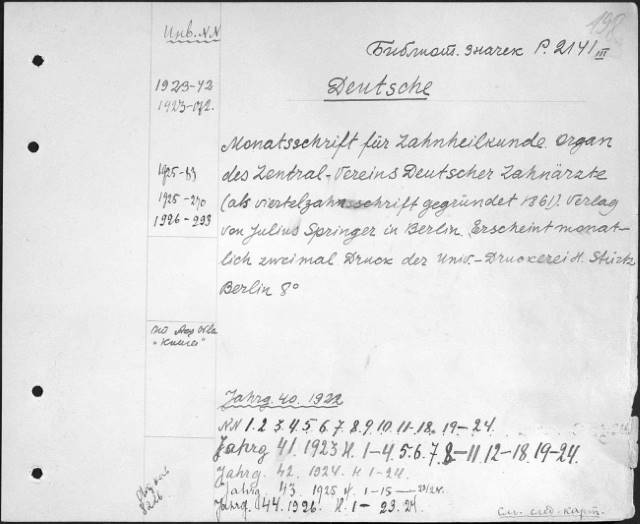 198
Инв. NN
Библиот. значек P. 2141 III
Deutsche
1923-42
1923-172.
Monatsschrift für Zahnheilkunde Organ
des Zentral-Vereins Deutscher Zahnärzte
(als viertelzahnsschrift gegründet 1861). Verlag
von Julius Springer in Berlin. Erscheint monat-
lich zweimal Druck der Univ.-Druckerei H. Stürtz
Berlin 8°
1925-83
1925-270
1926-293
по
"Книга"
Jahrg. 40. 1922
NN 1. 2. 3. 4. 5. 6. 7. 8. 9. 10. 11-18. 19-24.
Jahrg 41. 1923 H. 1-4. 5. 6. 7. 8-11. 12-18. 19-24.
Jahrg. 42. 1924. H 1-24.
Jahrg. 43. 1925 H. 1-15-24.
Jahrg. 44. 1926. H. 1-23. 24.
См. след. карт.